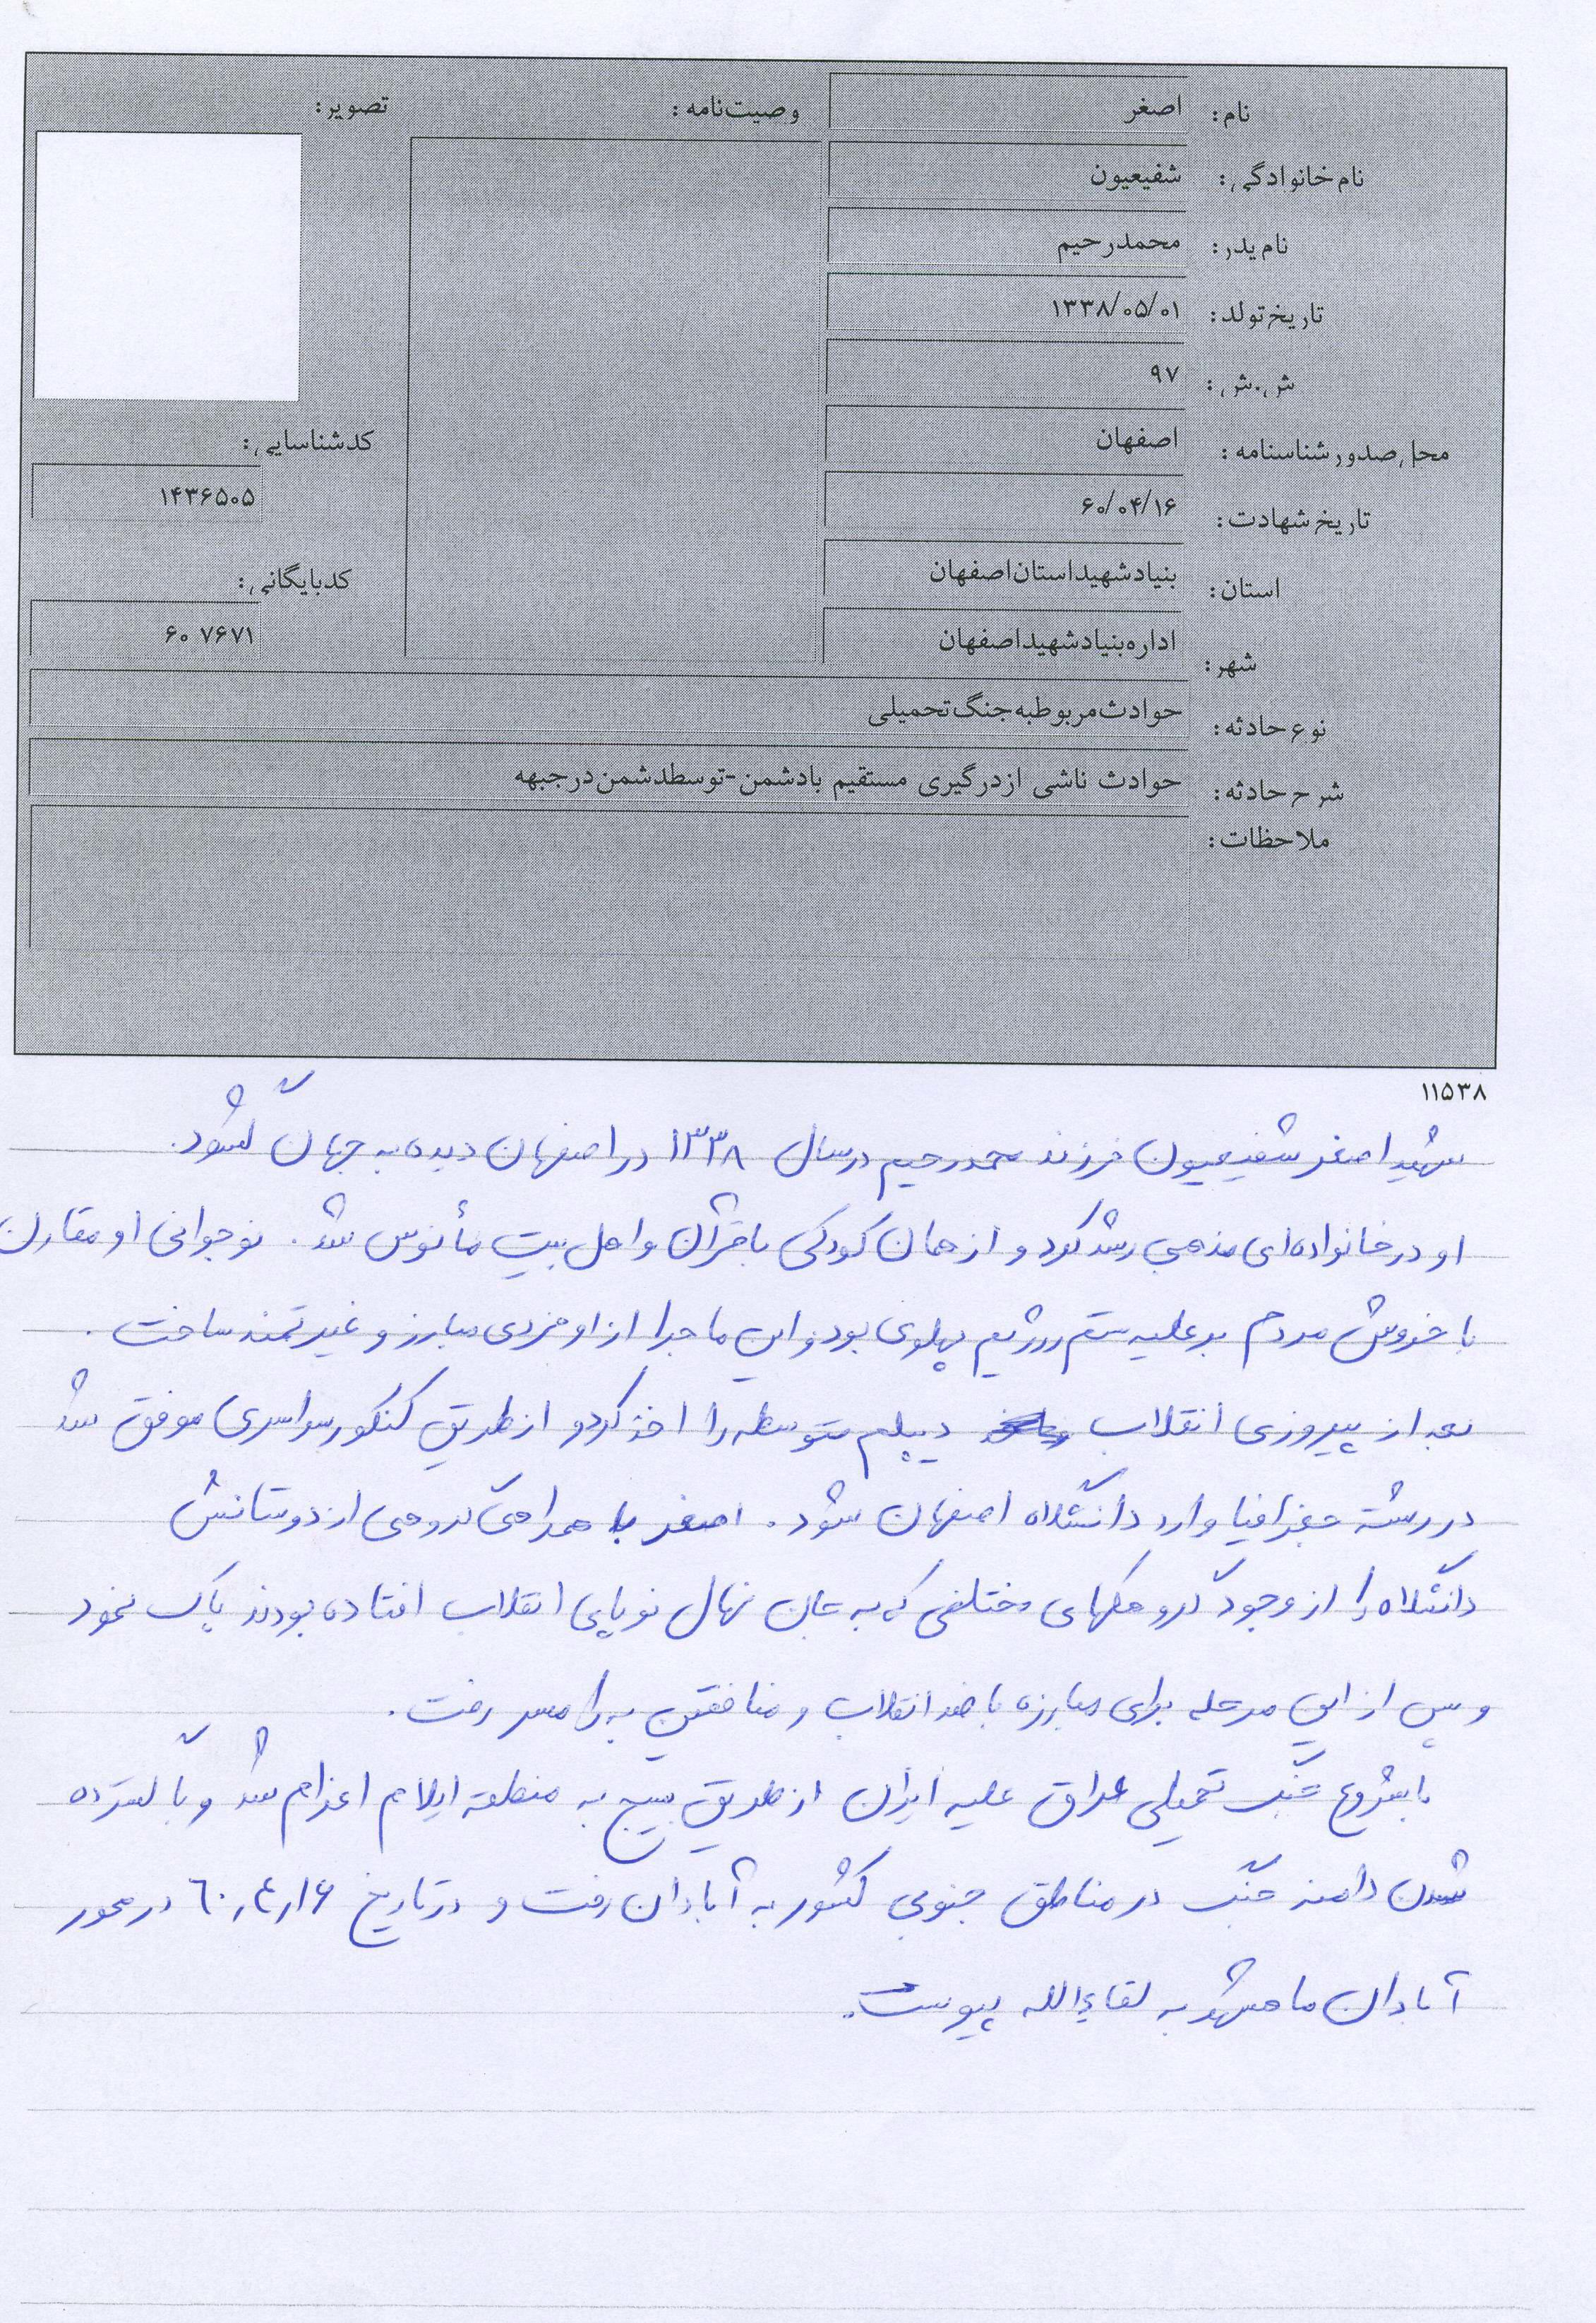 نام: اصغر
نام خانوادگی: شفیعیون
نام پدر: محمدرحیم
تاریخ تولد: ۱۳۳۸/۰۵/۰۱
ش.ش.: ۹۷
محل صدور شناسنامه: اصفهان
تاریخ شهادت: ۶۰/۰۴/۱۶
استان: بنیاد شهید استان اصفهان
شهر: اداره بنیاد شهید اصفهان
وصیت‌نامه:
تصویر:
کد شناسایی:
۱۴۳۶۵۰۵
کد بایگانی:
۶۰ ۷۶۷۱
نوع حادثه: حوادث مربوط به جنگ تحمیلی
شرح حادثه: حوادث ناشی از درگیری مستقیم با دشمن-توسط دشمن در جبهه
ملاحظات:
۱۱۵۳۸
شهید اصغر شفیعیون فرزند محمدرحیم در سال ۱۳۳۸ در اصفهان دیده به جهان گشود.
او در خانواده‌ای مذهبی رشد کرد و از همان کودکی با قرآن و اهل بیت مأنوس شد. نوجوانی او مقارن
با خروش مردم بر علیه ستم رژیم پهلوی بود و این ماجرا از او فردی مبارز و غیرتمند ساخت.
بعد از پیروزی انقلاب دیپلم متوسطه را اخذ کرد و از طریق کنکور سراسری موفق شد
در رشته جغرافیا وارد دانشگاه اصفهان شود. اصغر با همراهی گروهی از دوستانش
دانشگاه را از وجود گروهکهای مختلفی که به جان نهال نوپای انقلاب افتاده بودند پاک نمود
و پس از این مرحله برای مبارزه با ضد انقلاب و منافقین به رامسر رفت.
با شروع جنگ تحمیلی عراق علیه ایران از طریق بسیج به منطقه ایلام اعزام شد و با گسترده
شدن دامنه جنگ در مناطق جنوبی کشور به آبادان رفت و در تاریخ ۶۰,۴,۱۶ در محور
آبادان ماهشهر به لقاءالله پیوست.